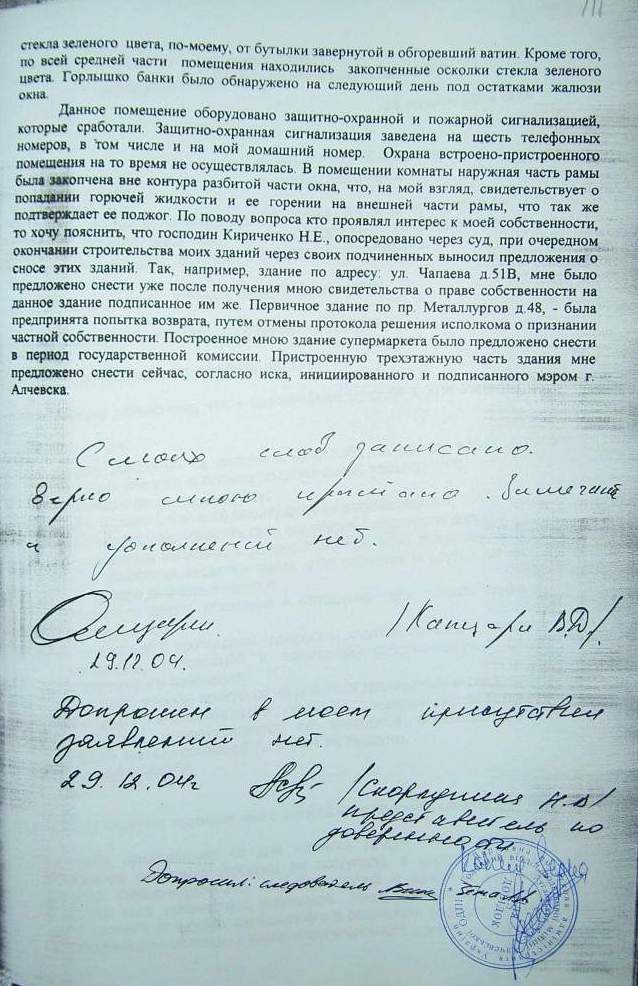 111
стекла зеленого цвета, по-моему, от бутылки завернутой в обгоревший ватин. Кроме того,
по всей средней части помещения находились закопченные осколки стекла зеленого
цвета. Горлышко банки было обнаружено на следующий день под остатками жалюзи
окна.
Данное помещение оборудовано защитно-охранной и пожарной сигнализацией,
которые сработали. Защитно-охранная сигнализация заведена на шесть телефонных
номеров, в том числе и на мой домашний номер. Охрана встроено-пристроенного
помещения на то время не осуществлялась. В помещении комнаты наружная часть рамы
была закопчена вне контура разбитой части окна, что, на мой взгляд, свидетельствует о
попадании горючей жидкости и ее горении на внешней части рамы, что так же
подтверждает ее поджог. По поводу вопроса кто проявлял интерес к моей собственности,
то хочу пояснить, что господин Кириченко Н.Е., опосредовано через суд, при очередном
окончании строительства моих зданий через своих подчиненных выносил предложения о
сносе этих зданий. Так, например, здание по адресу: ул. Чапаева д.51В, мне было
предложено снести уже после получения мною свидетельства о праве собственности на
данное здание подписанное им же. Первичное здание по пр. Металлургов д.48, - была
предпринята попытка возврата, путем отмены протокола решения исполкома о признании
частной собственности. Построенное мною здание супермаркета было предложено снести
в период государственной комиссии. Пристроенную трехэтажную часть здания мне
предложено снести сейчас, согласно иска, инициированного и подписанного мэром г.
Алчевска.
С моих слов записано.
Верно мною прочитано. Замечаний
и дополнений нет.
/Капцари В.Д./
29.12.04.
Допрошен в моем присутствии
заявлений нет.
29.12.04г
представитель по
доверенности
Допросил: следователь